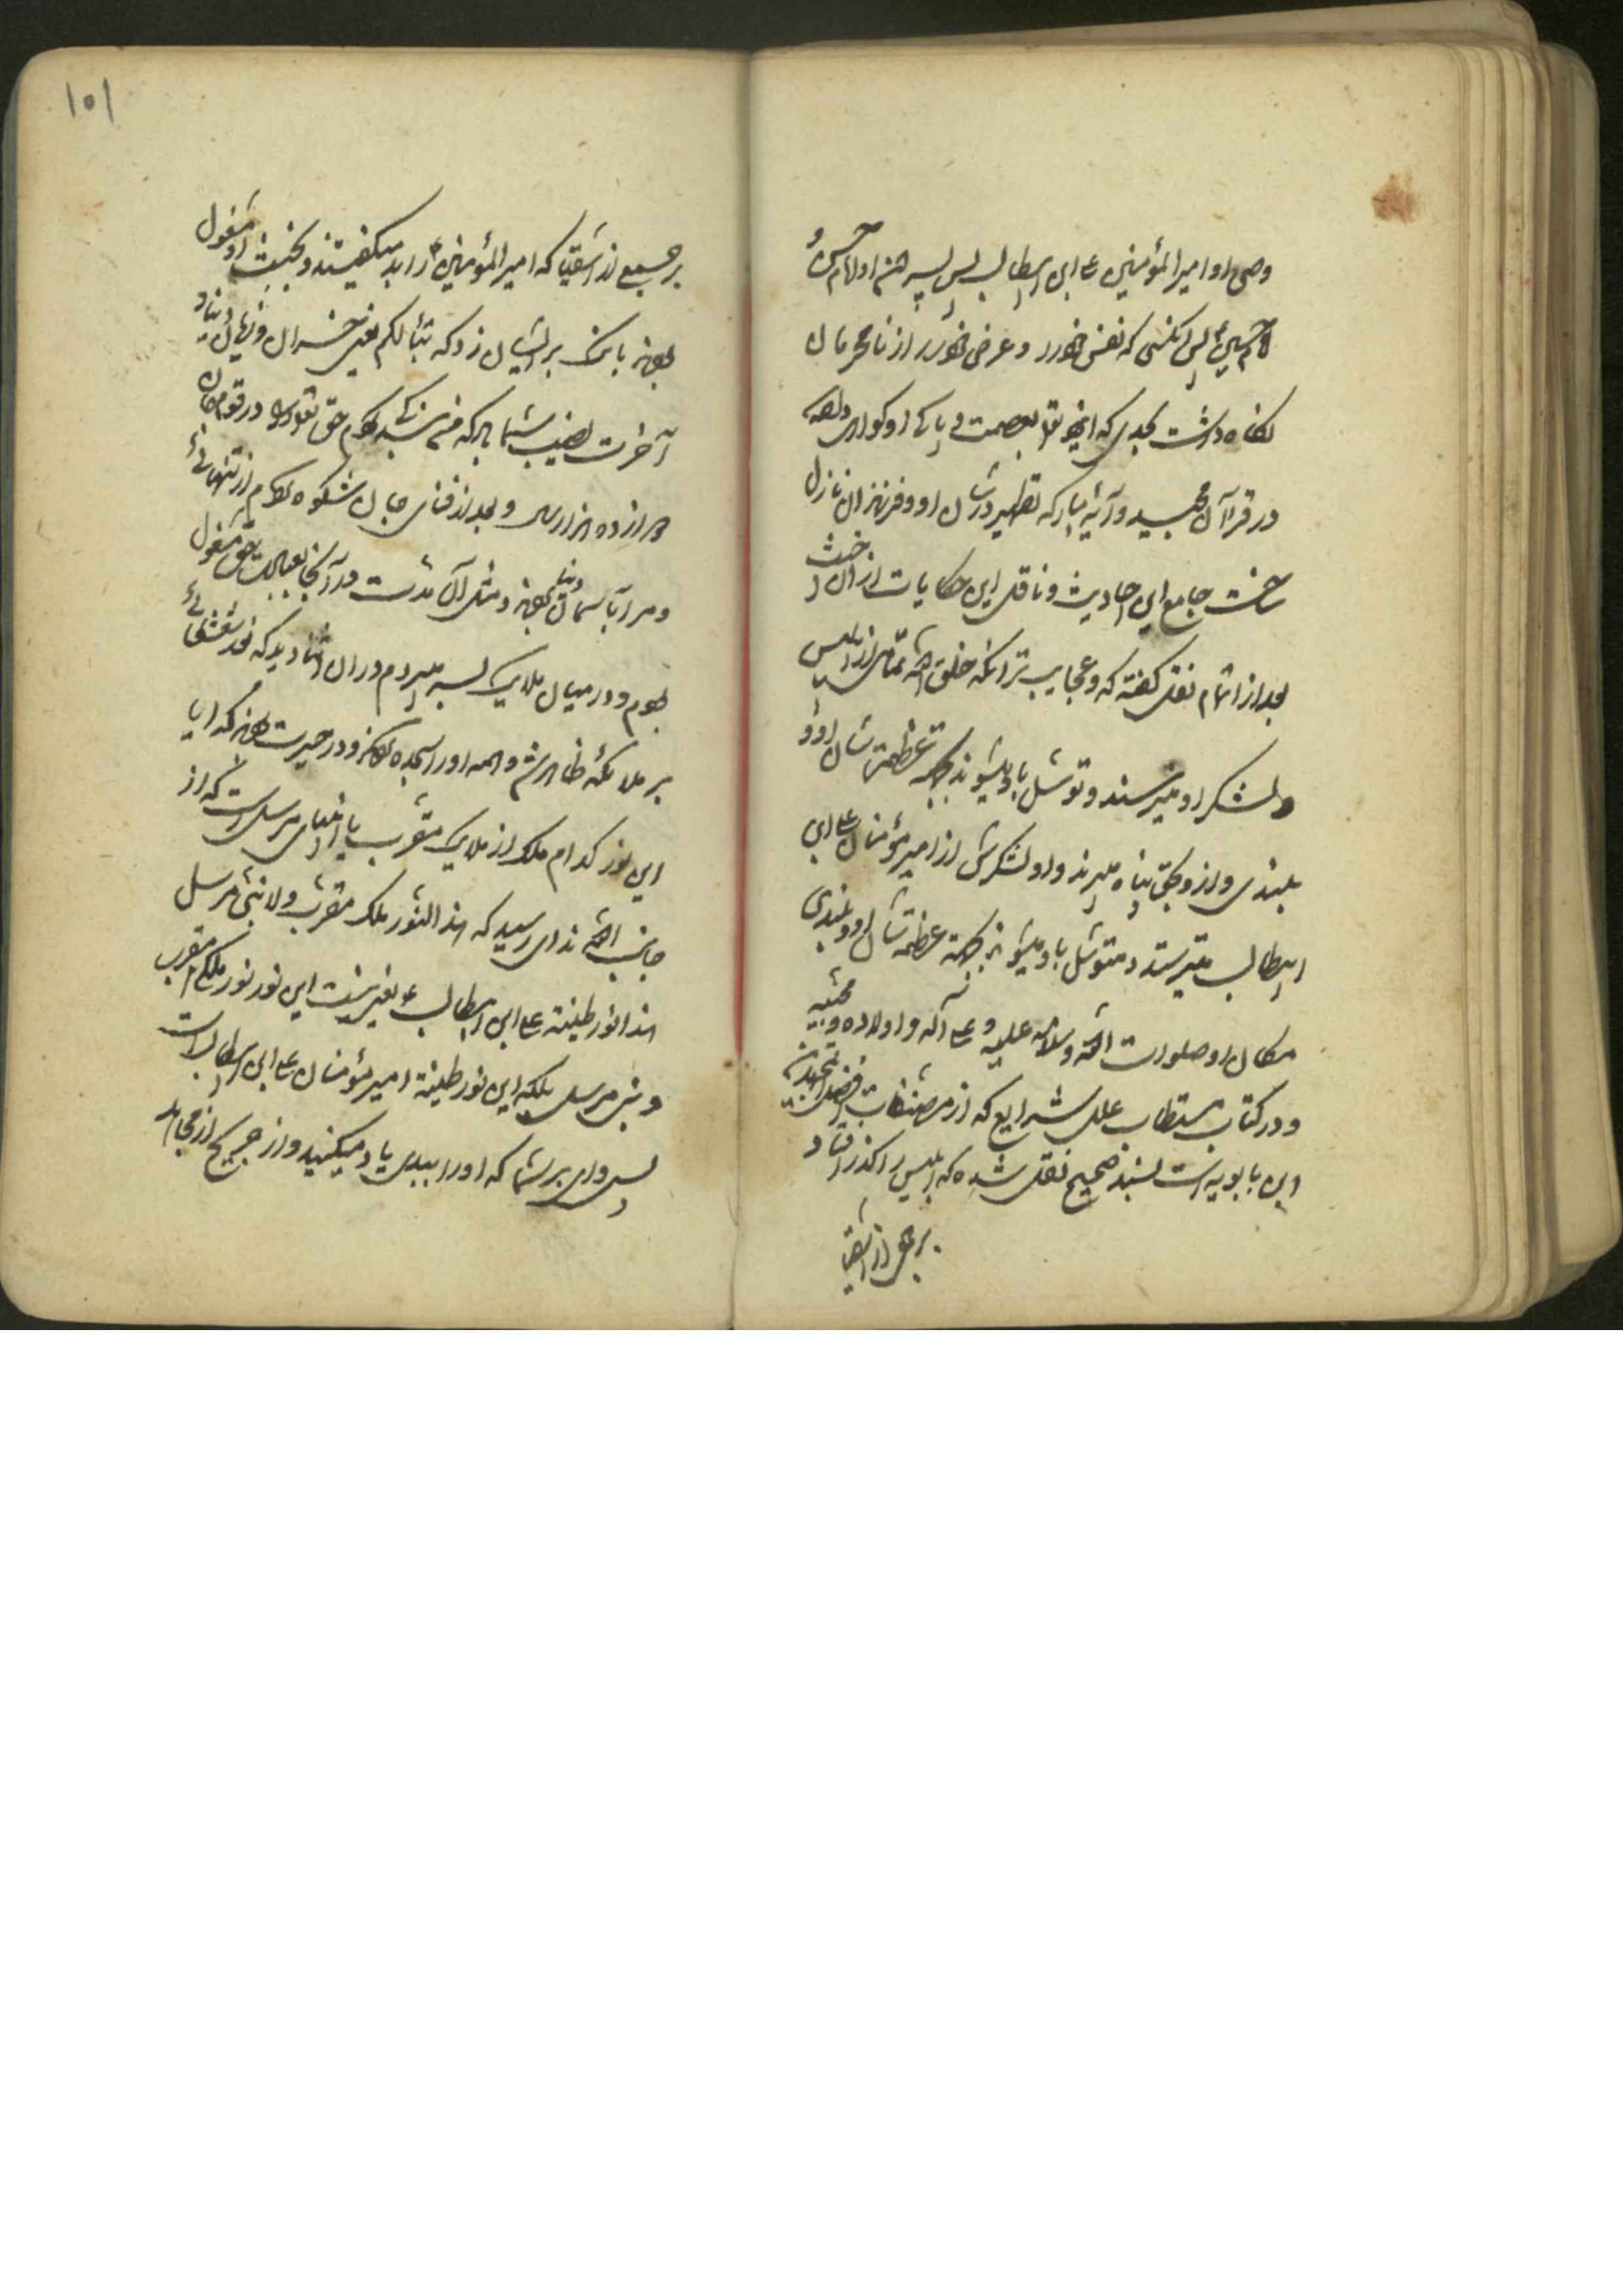 وصی او امیرالمؤمنین علی ابن ابیطالب پس پسر هنم او امام حسن و
امام حسین پس انکسی که نفس خود را و عرض خود را از نامحرمان
نکاه داشت بحدی که تعالی بعصمت و پاکی او کواهی داده
در قرآن مجید و آیه مبارکه تطهیر در شان او و فرزندان نازل
ساخت جامع این احادیث و ناقل این حکایات از آن
بعد از اتمام نقل کفته که و عجایب تر انکه خلق الله تمامی از ابلیس
و لشکر او میترسند و توسل باو میشوند بجهه عظمت شان او و
بلندی و از و بحق پناه میبرند و او و لشکرش از امیر مؤمنان علی ابن
ابیطالب میترسند و متوسل باو میشوند بجهة عظمة شان او و بلندی
مکان او صلوات الله و سلامه علیه و علی آله و اولاده و محبیه
و در کتاب مستطاب علل شرایع که از مصنفات افضل المجتهدین
ابن بابویه است بسند صحیح نقل شده که ابلیس را کذر افتاد
بر جمعی از اشقیا
۱۰۱
بر جمیع از اشقیا که امیرالمؤمنین را بد میکفتند و بخبیث او مشغول
بودند بانک بر ایشان زد که تبّا لکم یعنی خسران و زیان دنیا و
آخرت نصیب شما باد که من بندکی کردم حق تعالی را در قوم جان
دوازده هزار سال و بعد از فنای جان شکوه کردم از تنهائی
و مرا بآسمان دنیا بردند و مثل آن مدت در آنجا بعبادت حق مشغول
بودم و در میان ملایک بسر میبردم در آن اثنا دیدم که نور شعشعانی
بر ملائکه ظاهر شد و همه او را سجده کردند و در حیرت بودند که ایا
این نور کدام ملک از ملایک مقرب یا انبیای مرسل است که از
جانب الله ندای رسید که هذا النور لا ملک مقرب ولا نبی مرسل
هذا نور طینة علی ابن ابیطالب ع یعنی نیست این نور نور ملک مقرب
و نبی مرسل بلکه این نور طینة امیر مؤمنان علی ابن ابیطالب است
پس وای بر شما که او را ببدی یاد میکنید و از جریح از مجاهد